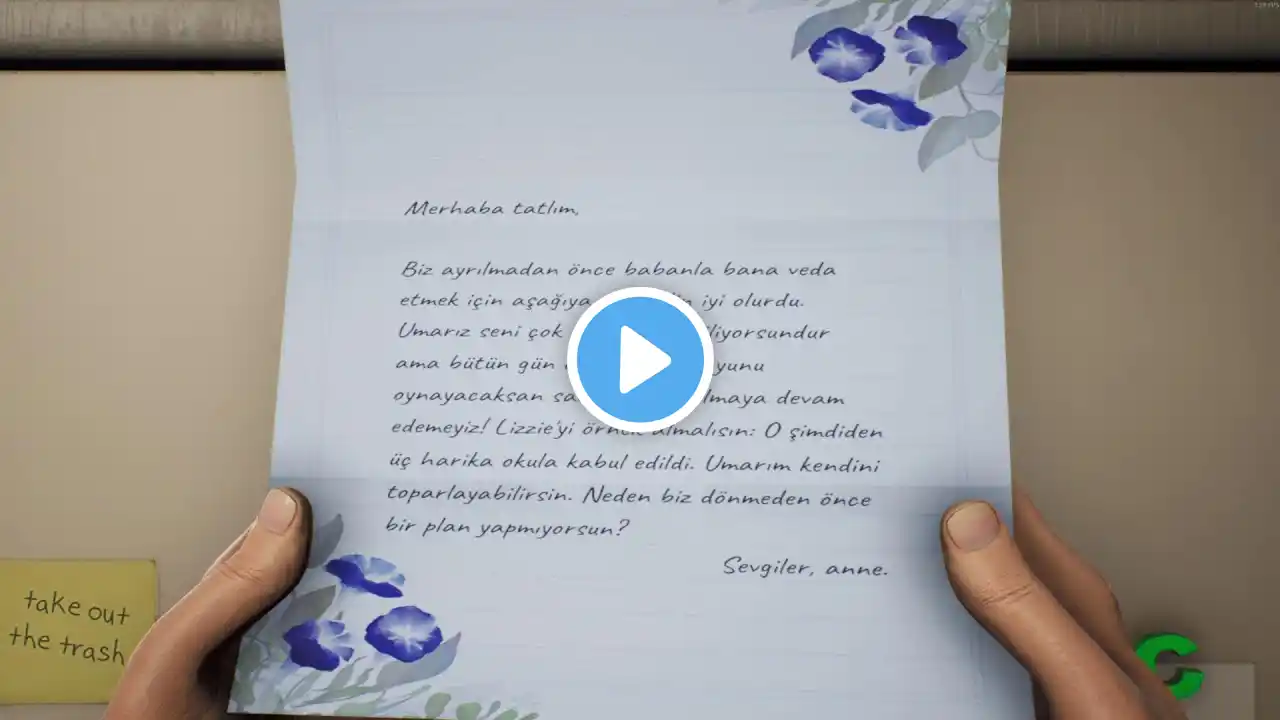 Merhaba tatlım,
Biz ayrılmadan önce babanla bana veda
etmek için aşağıya iyi olurdu.
Umarız seni çok
ama bütün gün
oynayacaksan devam
edemeyiz! Lizzie'yi örnek almalısın: O şimdiden
üç harika okula kabul edildi. Umarım kendini
toparlayabilirsin. Neden biz dönmeden önce
bir plan yapmıyorsun?
Sevgiler, anne.
take out
the trash
C